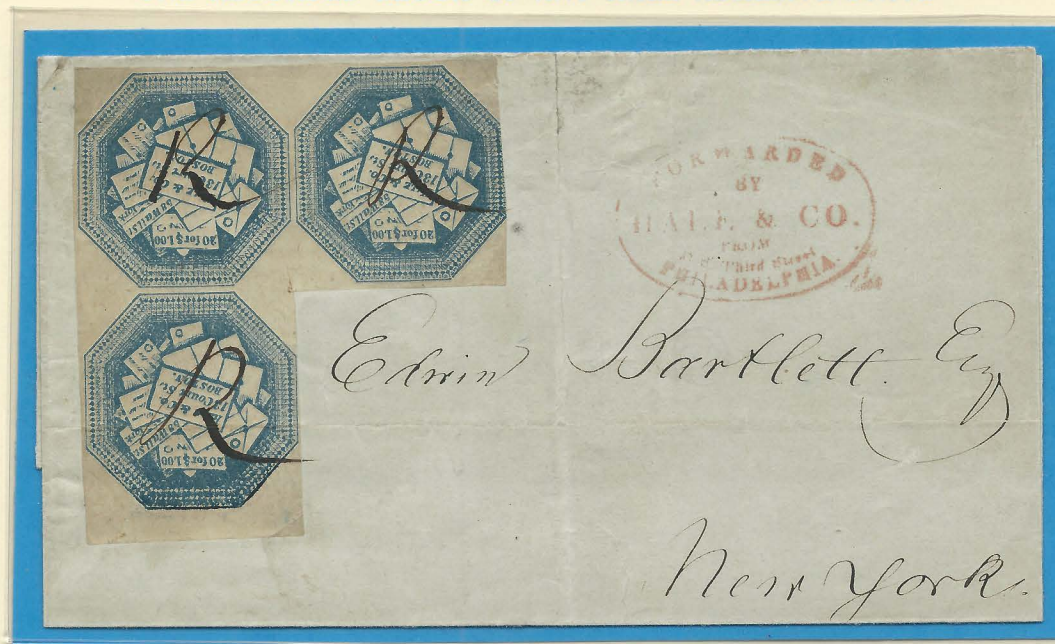 R
R
R
20 for $1.00
20 for $1.00
20 for $1.00
BOSTON
BOSTON
BOSTON
FORWARDED
BY
HALE & CO.
FROM
Third Street
PHILADELPHIA.
Edwin Bartlett Esq
New York.